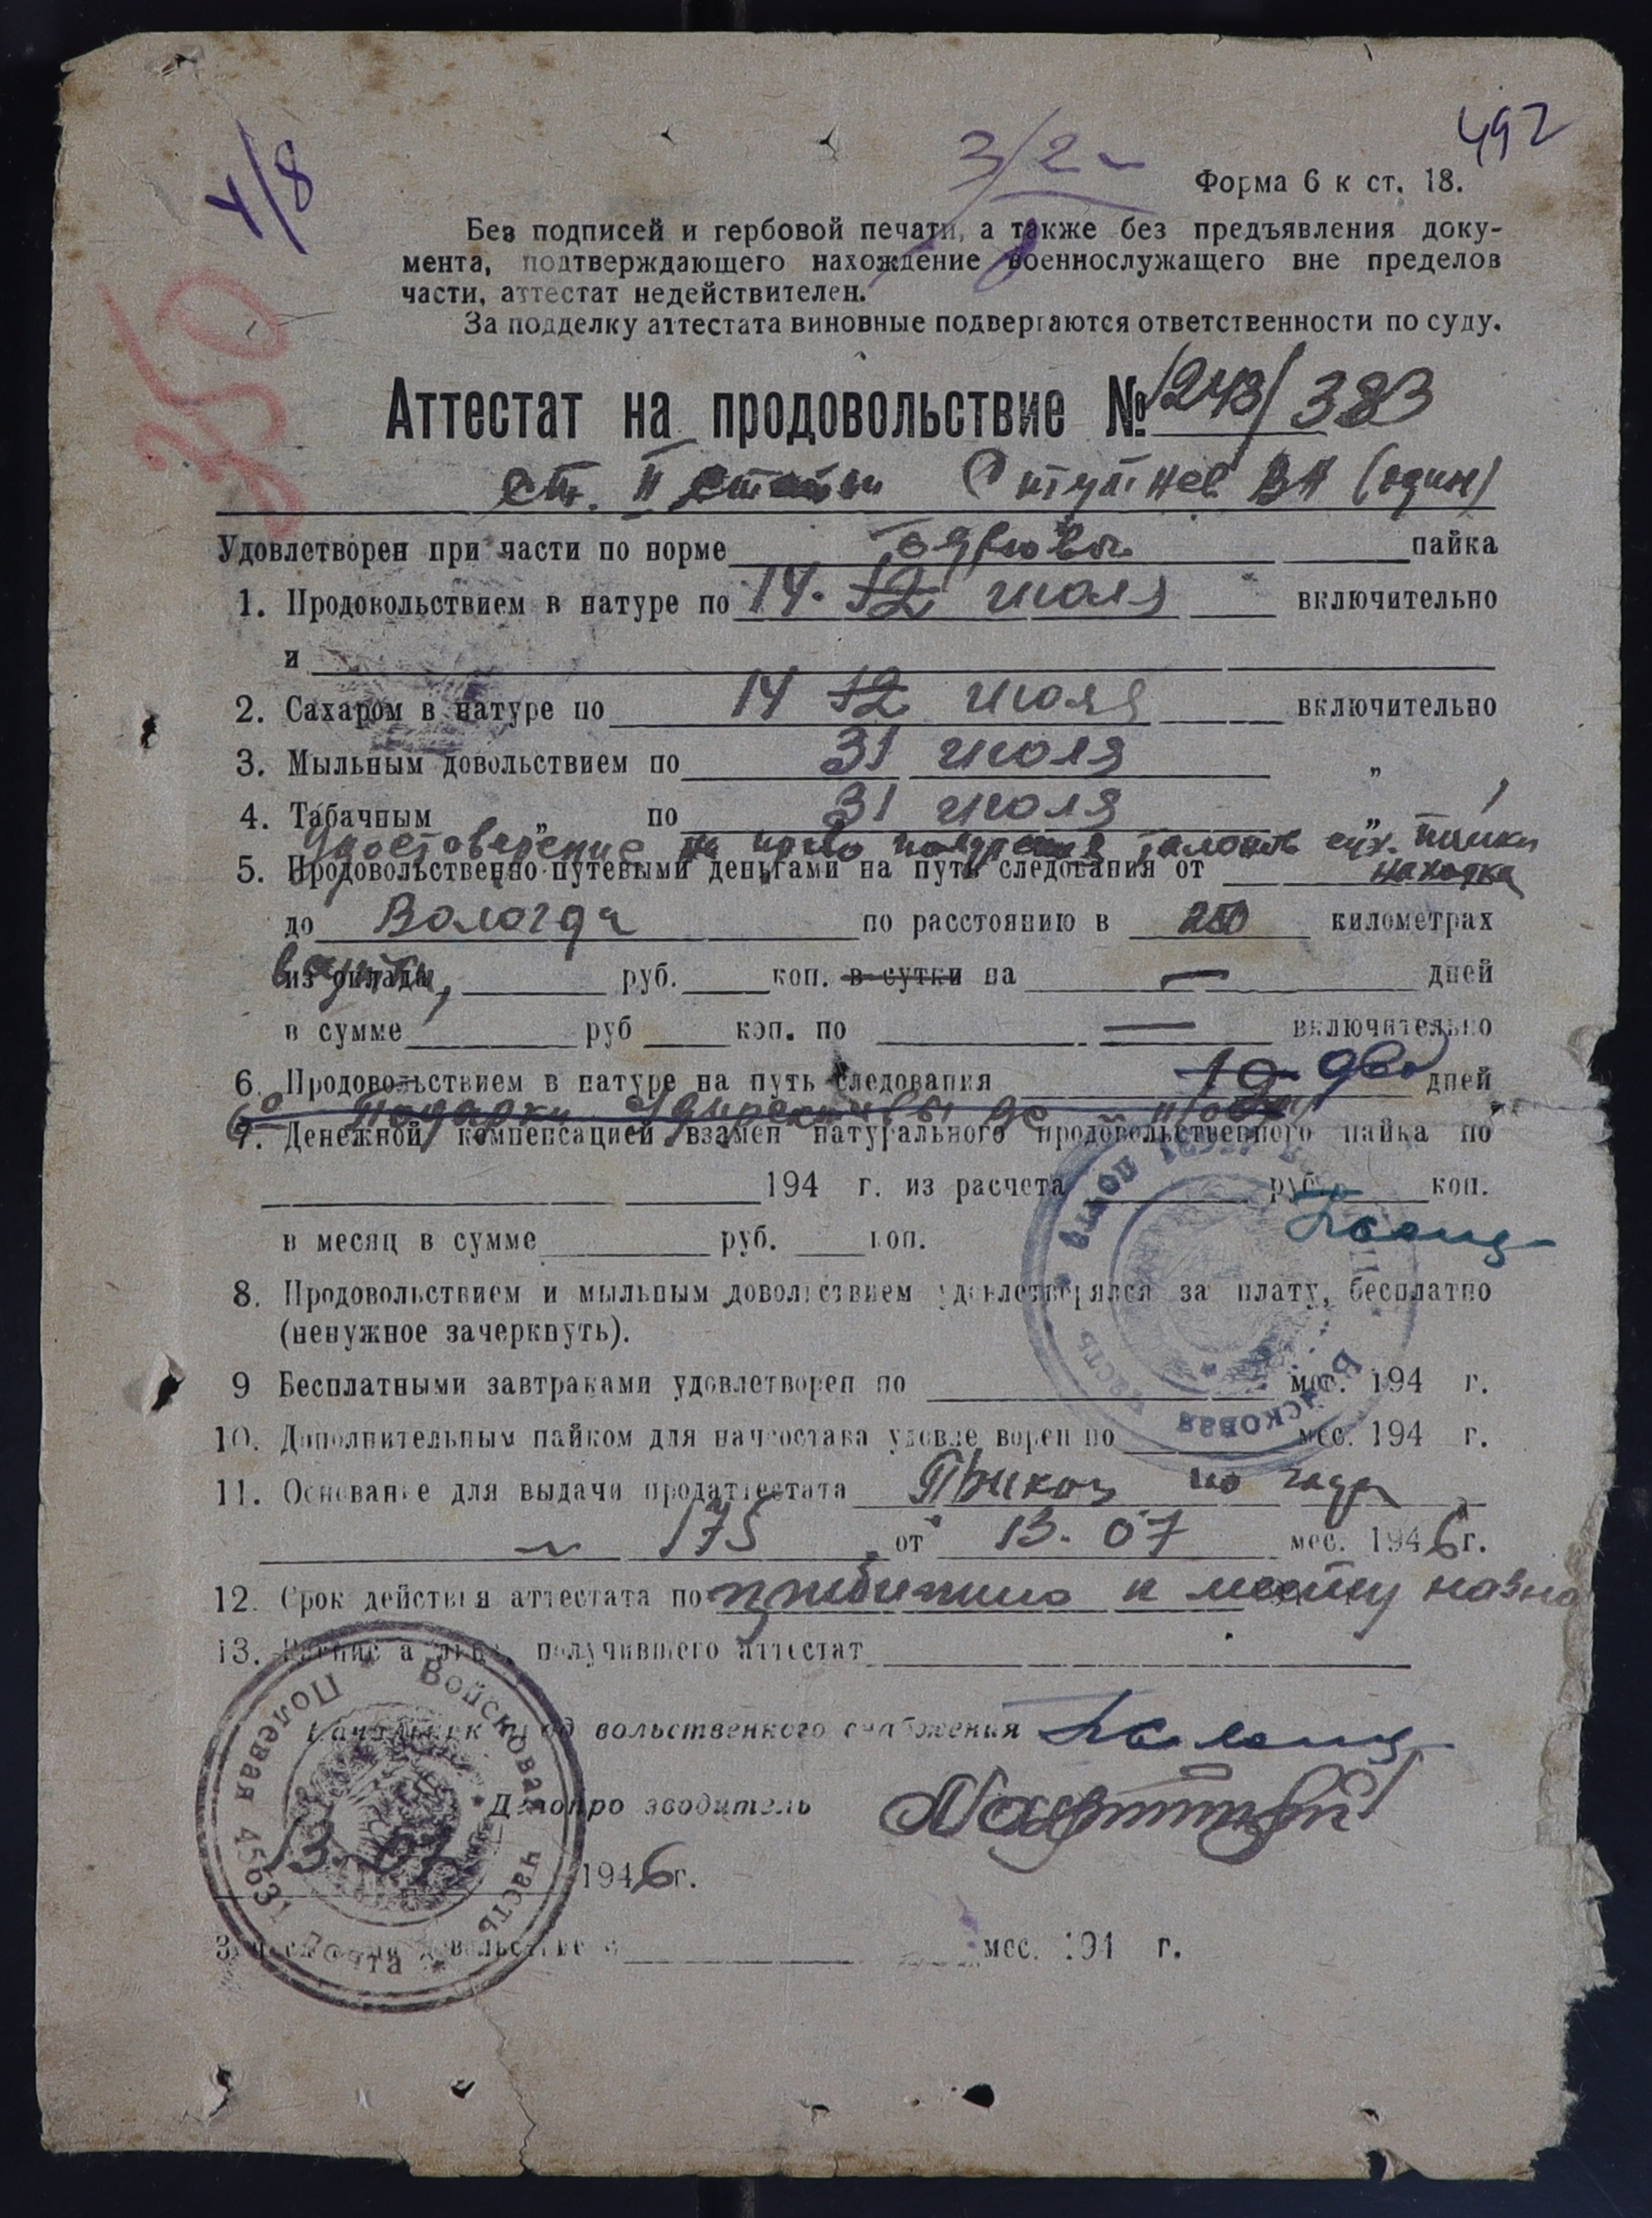 492
4/8
3/2
Форма 6 к ст. 18.
Без подписей и гербовой печати, а также без предъявления доку-
мента, подтверждающего нахождение военнослужащего вне пределов
части, аттестат недействителен.
За подделку аттестата виновные подвергаются ответственности по суду.
350
Аттестат на продовольствие № 1243/383
ст. II статьи ВА (один)
Удовлетворен при части по норме пайка
1. Продовольствием в натуре по 14. 12 июля включительно
и
2. Сахаром в натуре по 14 12 июля включительно
3. Мыльным довольствием по 31 июля "
4. Табачным " по 31 июля "
Удостоверение на право талонов сух. пайка
5. Продовольственно-путевыми деньгами на путь следования от Находка
до Вологда по расстоянию в 250 километрах
из оклада руб. коп. в сутки на — дней
в сумме руб коп. по — включительно
6. Продовольствием в натуре на путь следования дней
7. Денежной компенсацией взамен натурального продовольственного пайка по
194 г. из расчета руб. коп.
в месяц в сумме руб. коп.
8. Продовольствием и мыльным довольствием удовлетворялся за плату, бесплатно
(ненужное зачеркнуть).
9 Бесплатными завтраками удовлетворен по мес. 194 г.
10. Дополнительным пайком для начсостава удовлетворен по мес. 194 г.
11. Основание для выдачи продаттестата Приказ
175 от 13. 07 мес. 1946 г.
12. Срок действия аттестата по прибытию к месту назна
13. Роспись лица, получившего аттестат
Начальник продовольственного снабжения
Делопроизводитель
13. 07 1946 г.
Зачислен на довольствие с мес. 194 г.
Войсковая часть
Полевая почта 45631